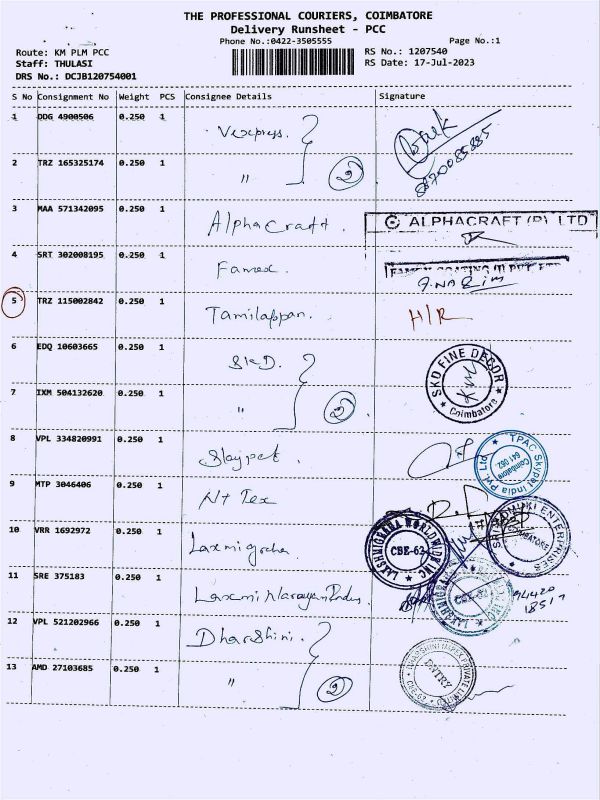 THE PROFESSIONAL COURIERS, COIMBATORE
Delivery Runsheet - PCC
Phone No.:0422-3505555 Page No.:1
Route: KM PLM PCC RS No.: 1207540
Staff: THULASI RS Date: 17-Jul-2023
DRS No.: DCJB120754001
S No Consignment No Weight PCS Consignee Details Signature
1 DDG 4900506 0.250 1 Vexpress.
2 TRZ 165325174 0.250 1 " 2
3 MAA 571342095 0.250 1 Alphacraft. ALPHACRAFT (P) LTD
4 SRT 302008195 0.250 1 Famex
5 TRZ 115002842 0.250 1 Tamilappan. H/R
6 EDQ 10603665 0.250 1 SKD. SKD FINE DECOR Coimbatore
7 IXM 504132620 0.250 1 " 2
8 VPL 334820991 0.250 1 Skypet TPAC Skypet India Pvt Ltd Coimbatore 641 062
9 MTP 3046406 0.250 1 N+ Tex ENTERPRISES COIMBATORE
10 VRR 1692972 0.250 1 Laxmigraha LAKSHMIGRAHA WORLDWIDE INC CBE-62
11 SRE 375183 0.250 1 Laxmi Narayan Indus.
12 VPL 521202966 0.250 1 Dharshini
13 AMD 27103685 0.250 1 " 2 DHARSHINI IMPEX PRIVATE LIMITED ENTRY CBE-62